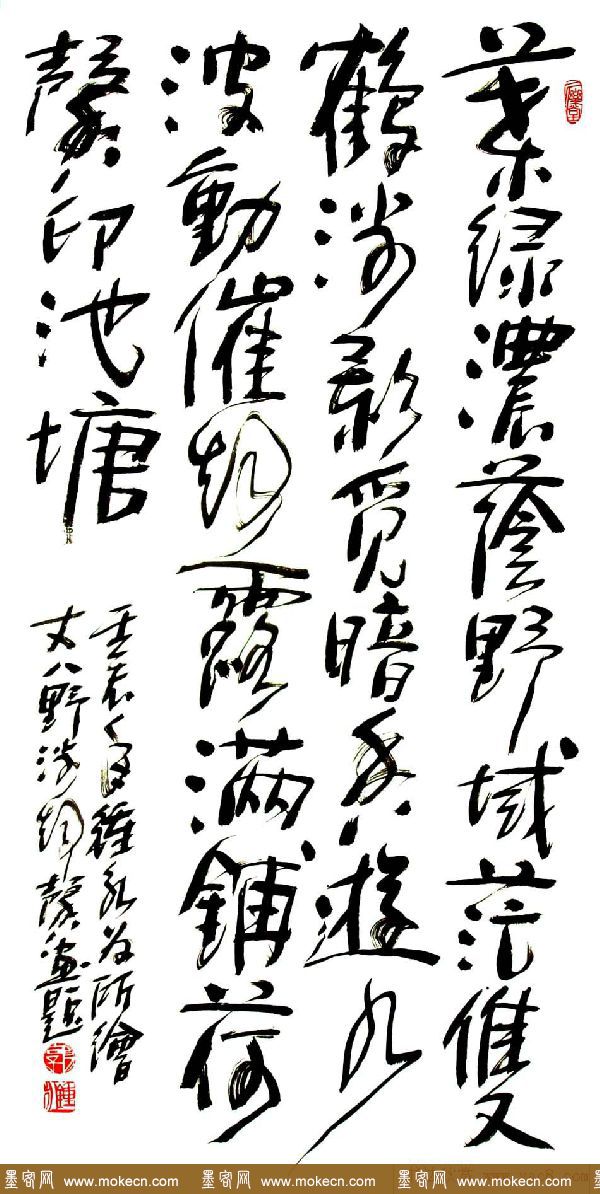 葉緑濃蔭野域茫雙
鶴涉影覓暗香遊水
波動催露滿鋪荷
馨印池塘
壬辰夏為所繪
丈八野涉馨畫題
墨客网 www.mokecn.com 墨客网 www.mokecn.com 墨客网 www.mokecn.com